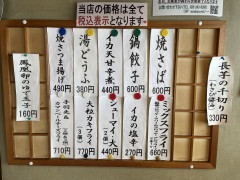 当店の価格は全て
税込表示となります
長芋の千切り
330円
焼そば
600円
ミックスフライ
660円
鍋餃子
600円
イカの塩辛
270円
イカ天甘辛煮
440円
シューマイ
440円
湯どうふ
380円
大粒カキフライ
770円
焼さつま揚げ
490円
710円
鳳凰卵のゆで玉子
160円